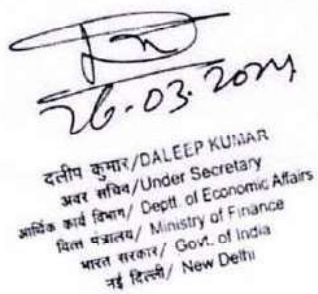 26.03.2024
दलीप कुमार/DALEEP KUMAR
अवर सचिव/Under Secretary
आर्थिक कार्य विभाग/ Deptt. of Economic Affairs
वित्त मंत्रालय/ Ministry of Finance
भारत सरकार/ Govt. of India
नई दिल्ली/ New Delhi